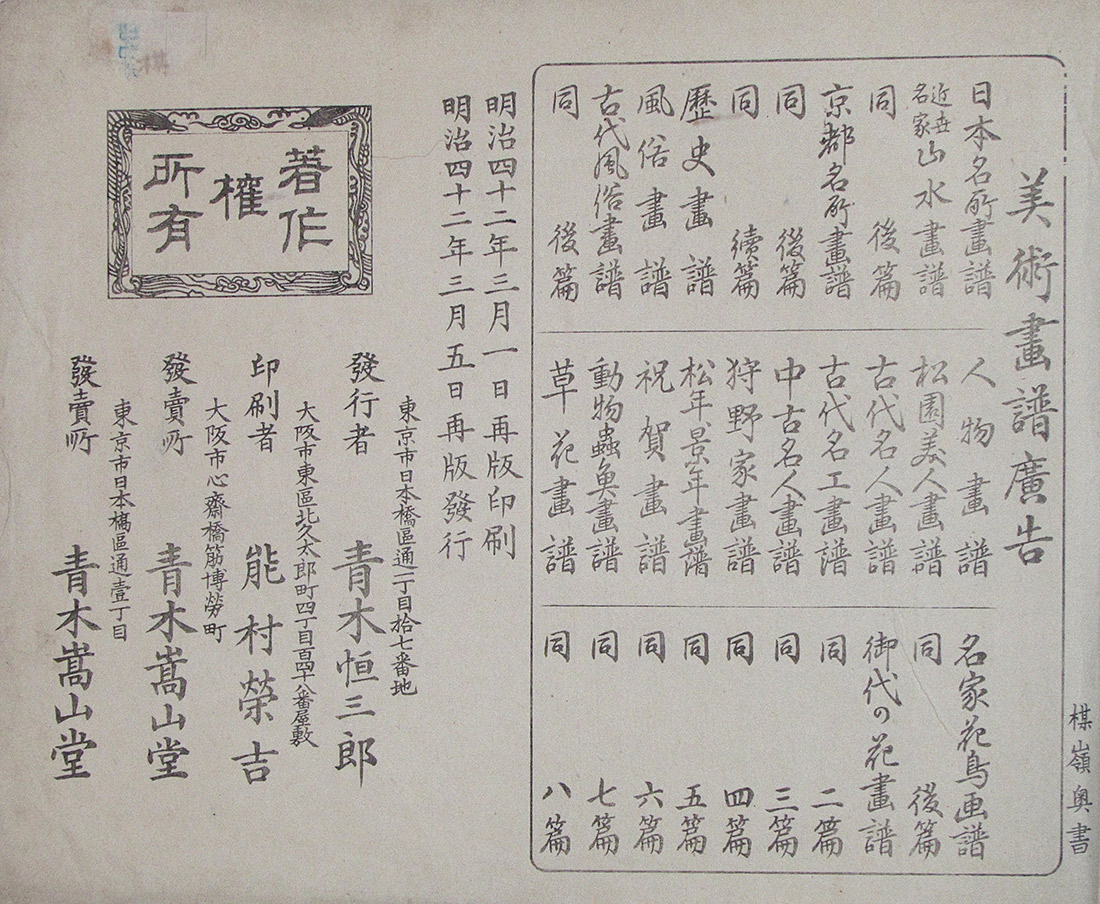 楳嶺奥書
美術畫譜廣告
日本名所畫譜
近世名家山水畫譜
同 後篇
京都名所畫譜
同 後篇
同 續篇
歷史畫譜
風俗畫譜
古代風俗畫譜
同 後篇
人物畫譜
松園美人畫譜
古代名人畫譜
古代名工畫譜
中古名人畫譜
狩野家畫譜
松年景年畫譜
祝賀畫譜
動物蟲魚畫譜
草花畫譜
名家花鳥画譜
同 後篇
御代の花畫譜
同 二篇
同 三篇
同 四篇
同 五篇
同 六篇
同 七篇
同 八篇
明治四十二年三月一日再版印刷
明治四十二年三月五日再版發行
著作
權
所有
東京市日本橋區通一丁目拾七番地
發行者 青木恒三郎
大阪市東區北久太郎町四丁目百四十八番屋敷
印刷者 能村榮吉
大阪市心齋橋筋博勞町
發賣所 青木嵩山堂
東京市日本橋區通壹丁目
發賣所 青木嵩山堂